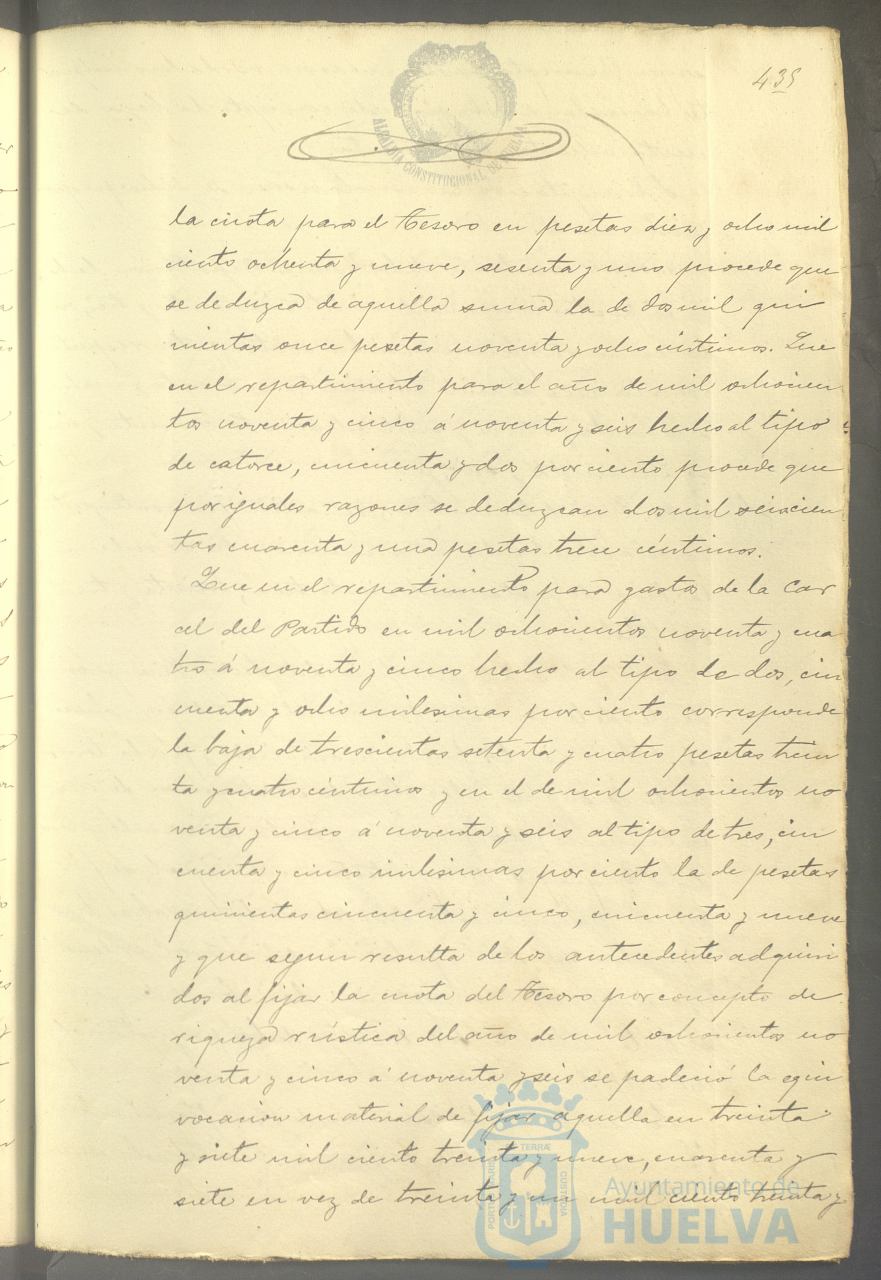 435
ALCALDIA CONSTITUCIONAL DE HUELVA
la cuota para el Tesoro en pesetas diez y ocho mil
ciento ochenta y nueve, sesenta y uno procede que
se deduzca de aquella suma la de dos mil qui
nientas once pesetas noventa y ocho céntimos. Que
en el repartimiento para el año de mil ochocien
tos noventa y cinco á noventa y seis hecho al tipo
de catorce, cincuenta y dos por ciento procede que
por iguales razones se deduzcan dos mil seiscien
tas cuarenta y una pesetas trece céntimos.
Que en el repartimiento para gastos de la Car
cel del Partido en mil ochocientos noventa y cua
tro á noventa y cinco hecho al tipo de dos, cin
cuenta y ocho milesimas por ciento corresponde
la baja de trescientas setenta y cuatro pesetas trein
ta y cuatro céntimos y en el de mil ochocientos no
venta y cinco á noventa y seis al tipo de tres, cin
cuenta y cinco milesimas por ciento la de pesetas
quinientas cincuenta y cinco, cincuenta y nueve
y que segun resulta de los antecedentes adquiri
dos al fijar la cuota del Tesoro por concepto de
riqueza rústica del año de mil ochocientos no
venta y cinco á noventa y seis se padeció la equi
vocacion material de fijar aquella en treinta
y siete mil ciento treinta y nueve, cuarenta y
siete en vez de treinta y un mil ciento treinta y
PORTUS MARIS
TERRÆ
CUSTODIA
Ayuntamiento de
HUELVA